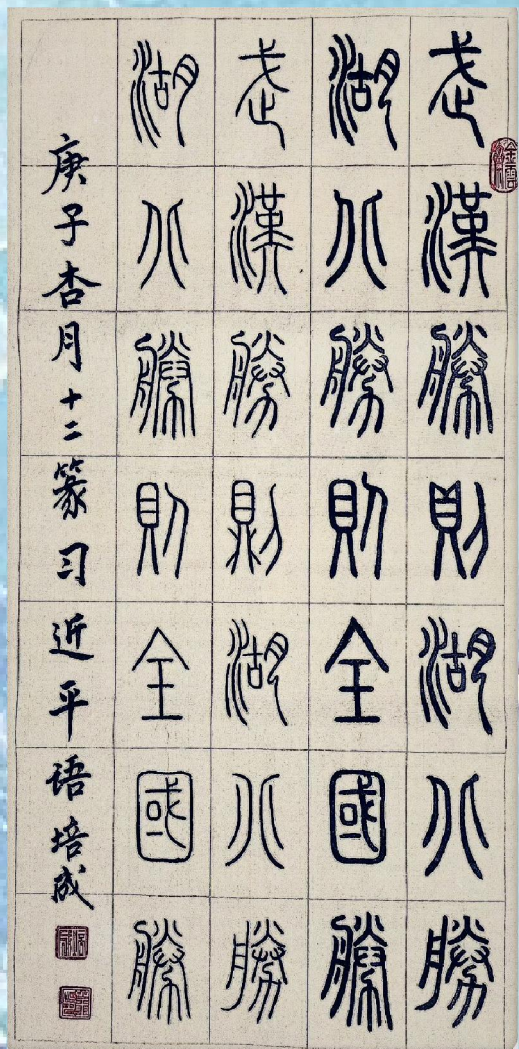 武漢勝則湖北勝
湖北勝則全國勝
武漢勝則湖北勝
湖北勝則全國勝
庚子杏月十二篆习近平语培成